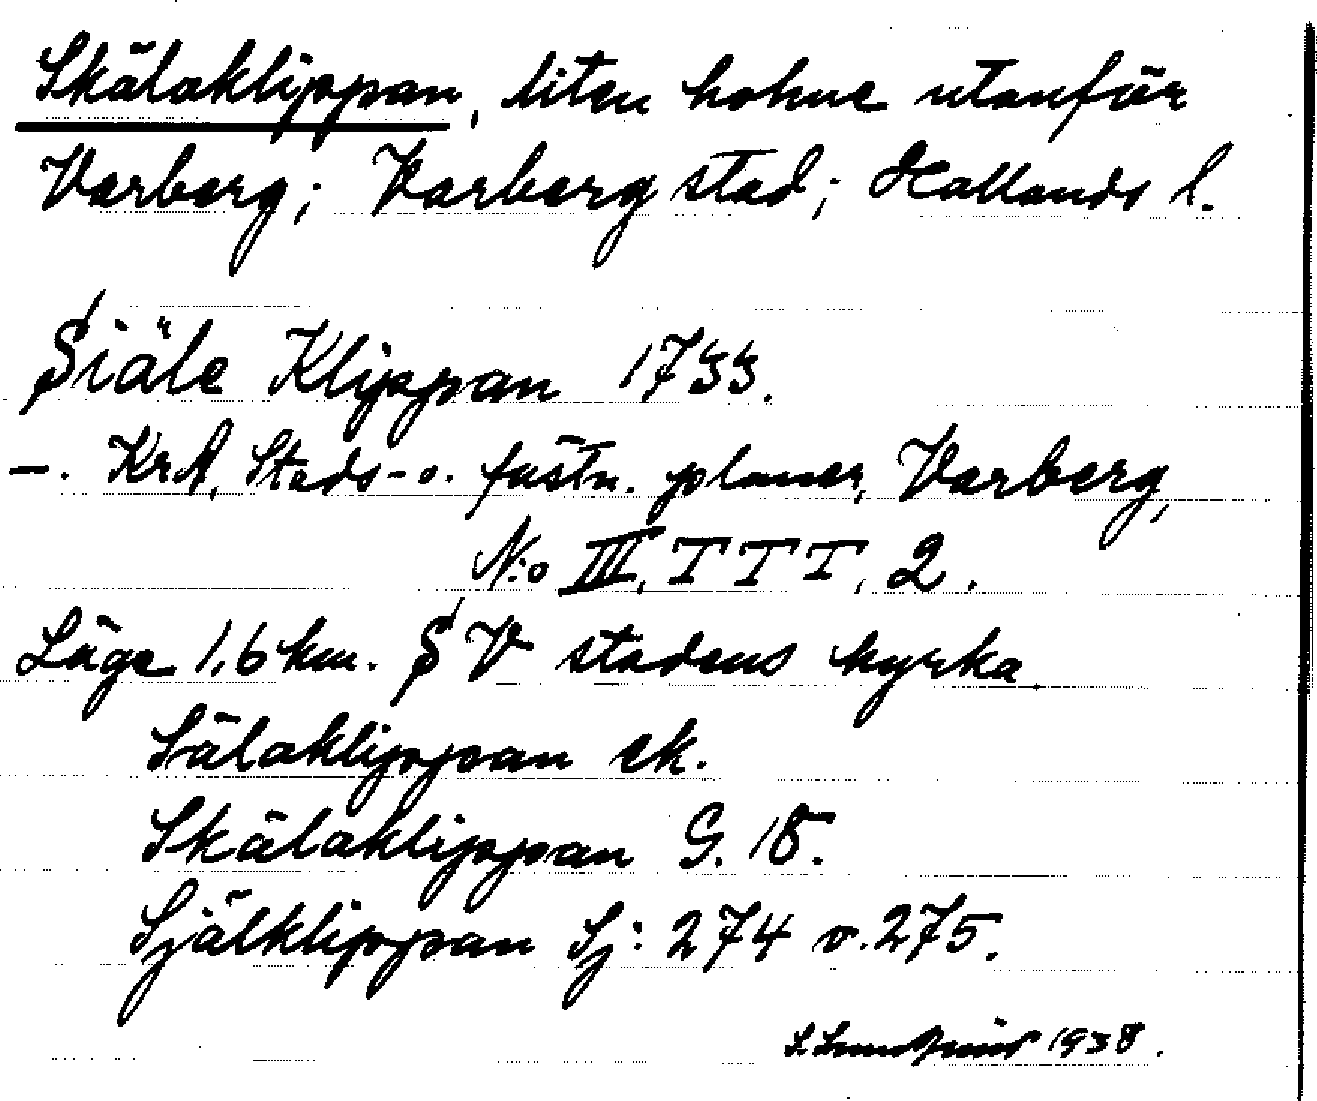 Skälaklippan, liten holme utanför
Varberg; Varberg stad; Hallands l.
Siäle Klippan 1733.
—. KrA, Stads- o. fästn. planer, Varberg,
N:o III, TTT, 2.
Läge 1,6 km. S V stadens kyrka
Sälaklippan ek.
Skälaklippan G. 15.
Själklippan Sj: 274 o. 275.
1938.